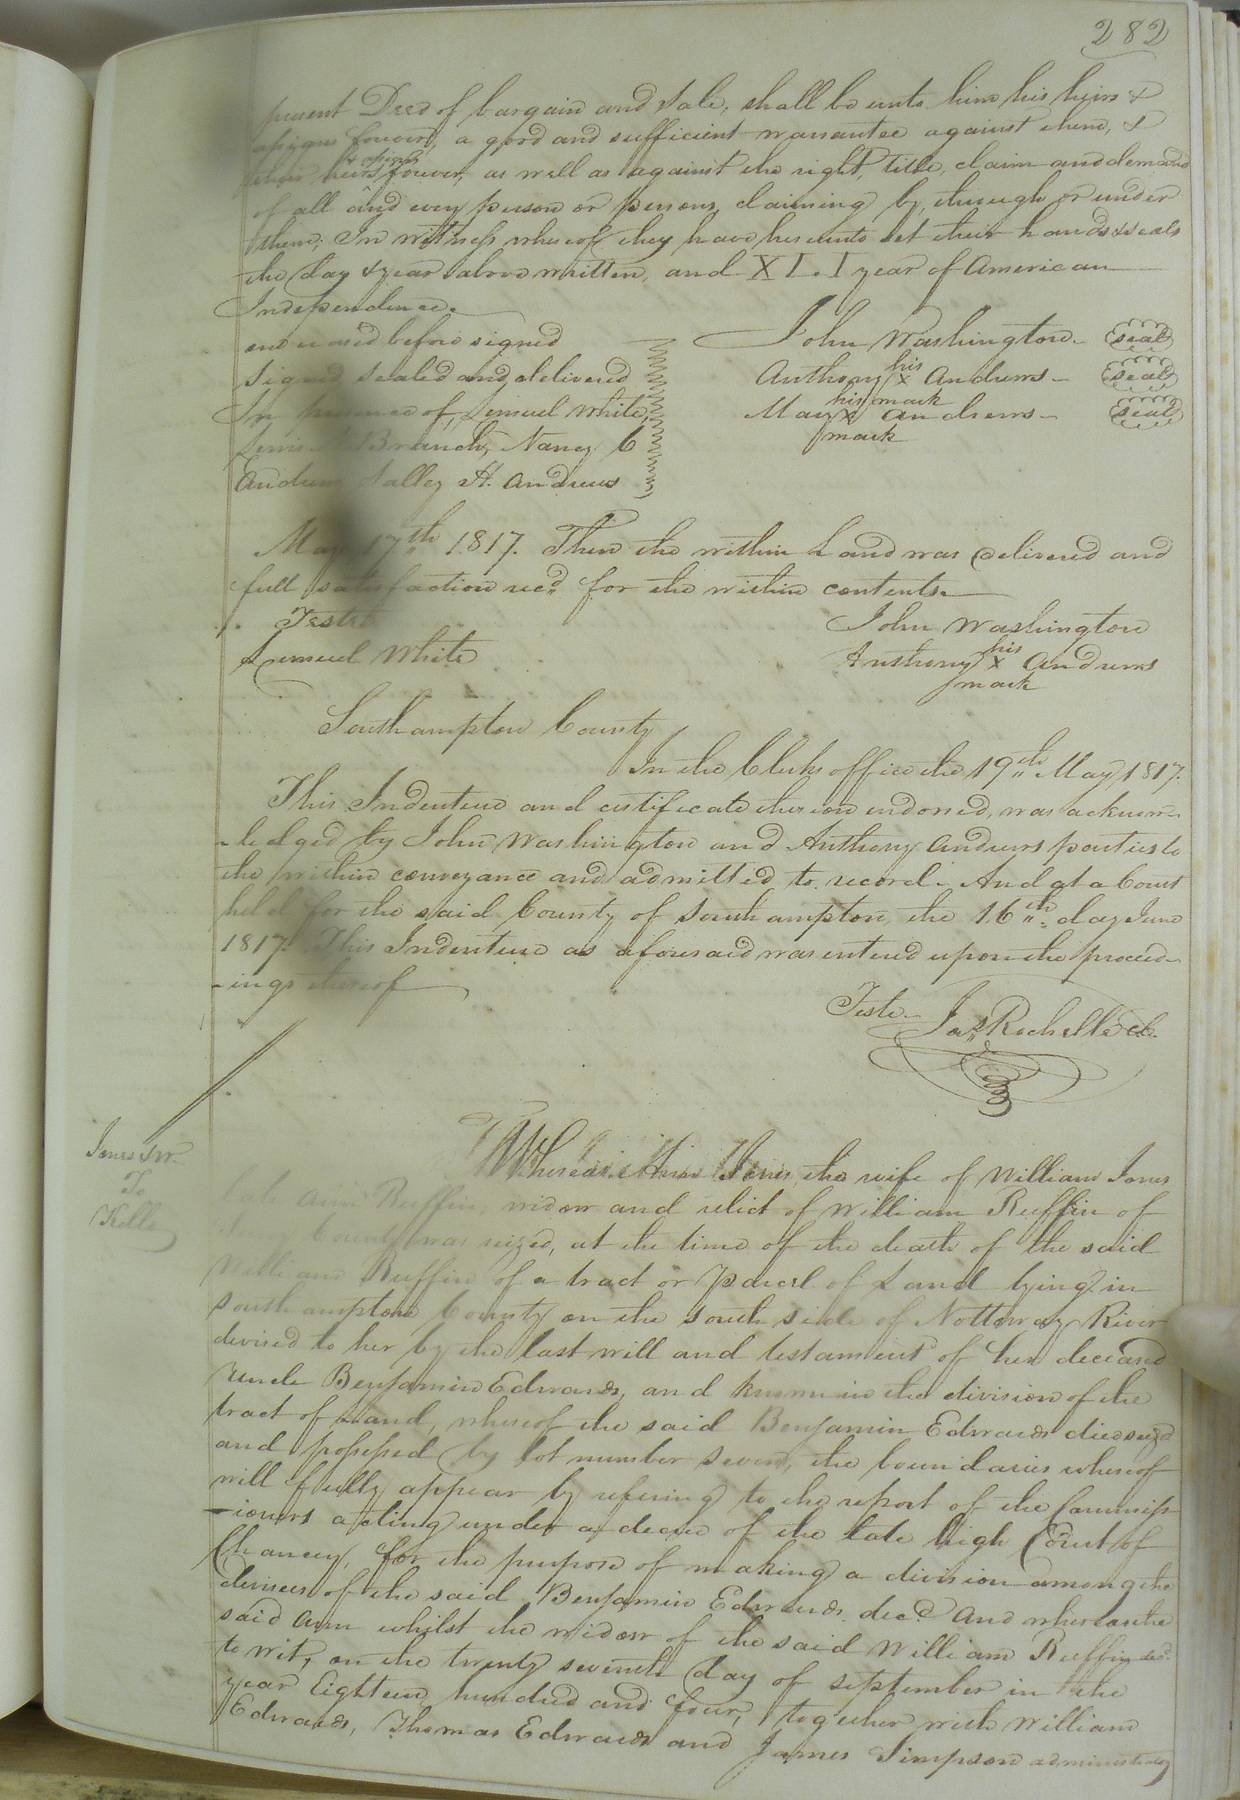 282
present Deed of bargain and Sale, shall be unto him his heirs &
assigns forever, a good and sufficient warrantee against them, &
& assigns
their heirs forever, as well as against the right, title, claim and demand
of all and every person or persons, claiming by, through or under
them; In witness whereof they have hereunto set their hands & seals
the day & year above written, and XLI year of American
Independence.
endorsed before signed
Signed sealed and delivered
In presence of, Lemuel White,
Branch, Nancy C
Andrews Salley H. Andrews
John Washington seal
his
Anthony x Andrews seal
his mark
Mary x Andrews seal
mark
May 17th 1817. Then the within Land was delivered and
full satisfaction recd. for the within contents.
Teste
Lemuel White
John Washington
his
Anthony x Andrews
mark
Southampton County
In the Clerks office the 19th May, 1817.
This Indenture and certificate thereon endorsed, was acknow-
-ledged by John Washington and Anthony Andrews parties to
the within conveyance and admitted to record. And at a Court
held for the said County of Southampton, the 16th day June
1817. This Indenture as aforesaid was entered upon the proceed-
-ings thereof
Teste Jas. Rochelle Clk.
Jones &c.
To
Kello
Whereas Ann Jones, the wife of William Jones
late Ann Ruffin, widow and relict of William Ruffin of
County was seized, at the time of the death of the said
William Ruffin of a tract or parcel of Land lying in
Southampton County on the south side of Nottoway River
devised to her by the last will and testament of her deceased
Uncle Benjamin Edwards, and known in the division of the
tract of Land, whereof the said Benjamin Edwards died seized
and possessed by lot number seven, the boundaries whereof
will fully appear by refering to the report of the Commiss-
-ioners acting under a decree of the late high Court of
Chancery, for the purpose of making a division among the
devisees of the said Benjamin Edwards decd. And whereas the
said Ann whilst the widow of the said William Ruffin decd.
to wit, on the twenty seventh day of september in the
year Eighteen hundred and four, together with William
Edwards, Thomas Edwards and James Simpson